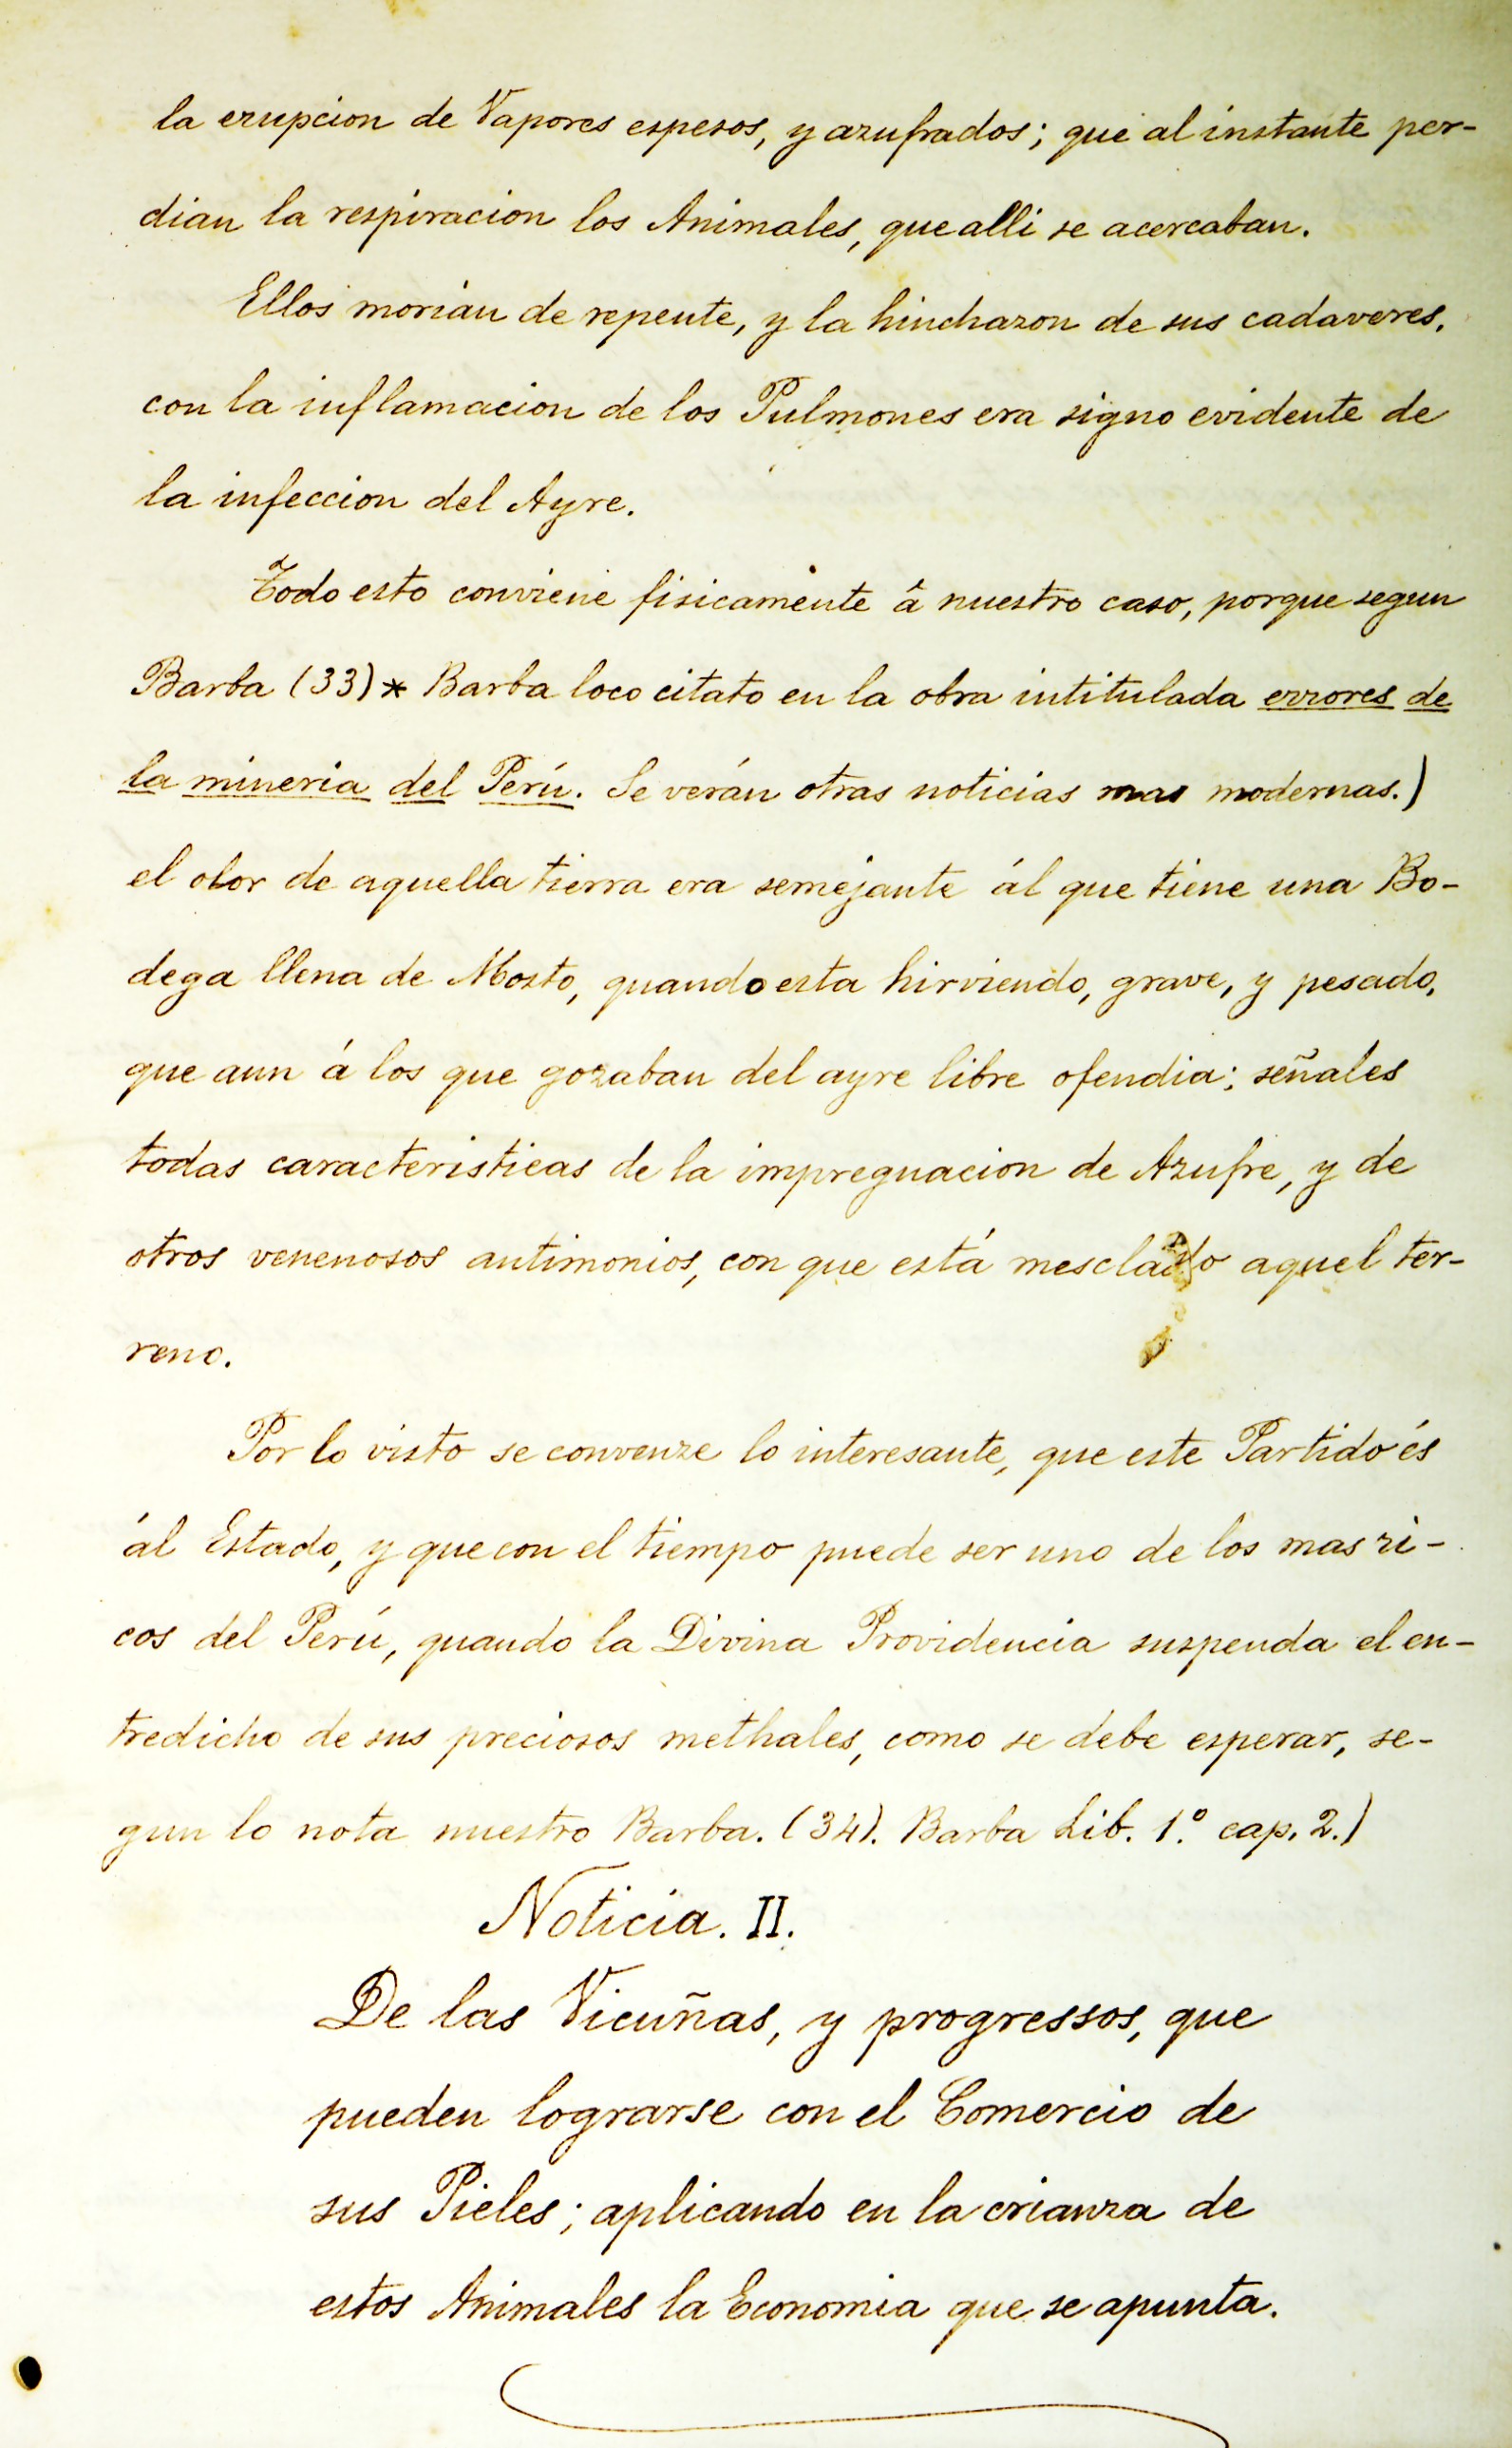 la erupcion de Vapores espesos, y azufrados; que al instante per-
dian la respiracion los Animales, que alli se acercaban.
Ellos morian de repente, y la hinchazon de sus cadaveres,
con la inflamacion de los Pulmones era signo evidente de
la infeccion del Ayre.
Todo esto conviene fisicamente á nuestro caso, porque segun
Barba (33)* Barba loco citato en la obra intitulada errores de
la mineria del Perú. Se verán otras noticias mas modernas.)
el olor de aquella tierra era semejante ál que tiene una Bo-
dega llena de Mosto, quando esta hirviendo, grave, y pesado,
que aun á los que gozaban del ayre libre ofendia; señales
todas caracteristicas de la impregnacion de Azufre, y de
otros venenosos antimonios, con que está mesclado aquel ter-
reno.
Por lo visto se convenze lo interesante, que este Partido és
ál Estado, y que con el tiempo puede ser uno de los mas ri-
cos del Perú, quando la Divina Providencia suspenda el en-
tredicho de sus preciosos methales, como se debe esperar, se-
gun lo nota nuestro Barba. (34). Barba Lib. 1.º cap. 2.)
Noticia. II.
De las Vicuñas, y progressos, que
pueden lograrse con el Comercio de
sus Pieles; aplicando en la crianza de
estos Animales la Economia que se apunta.